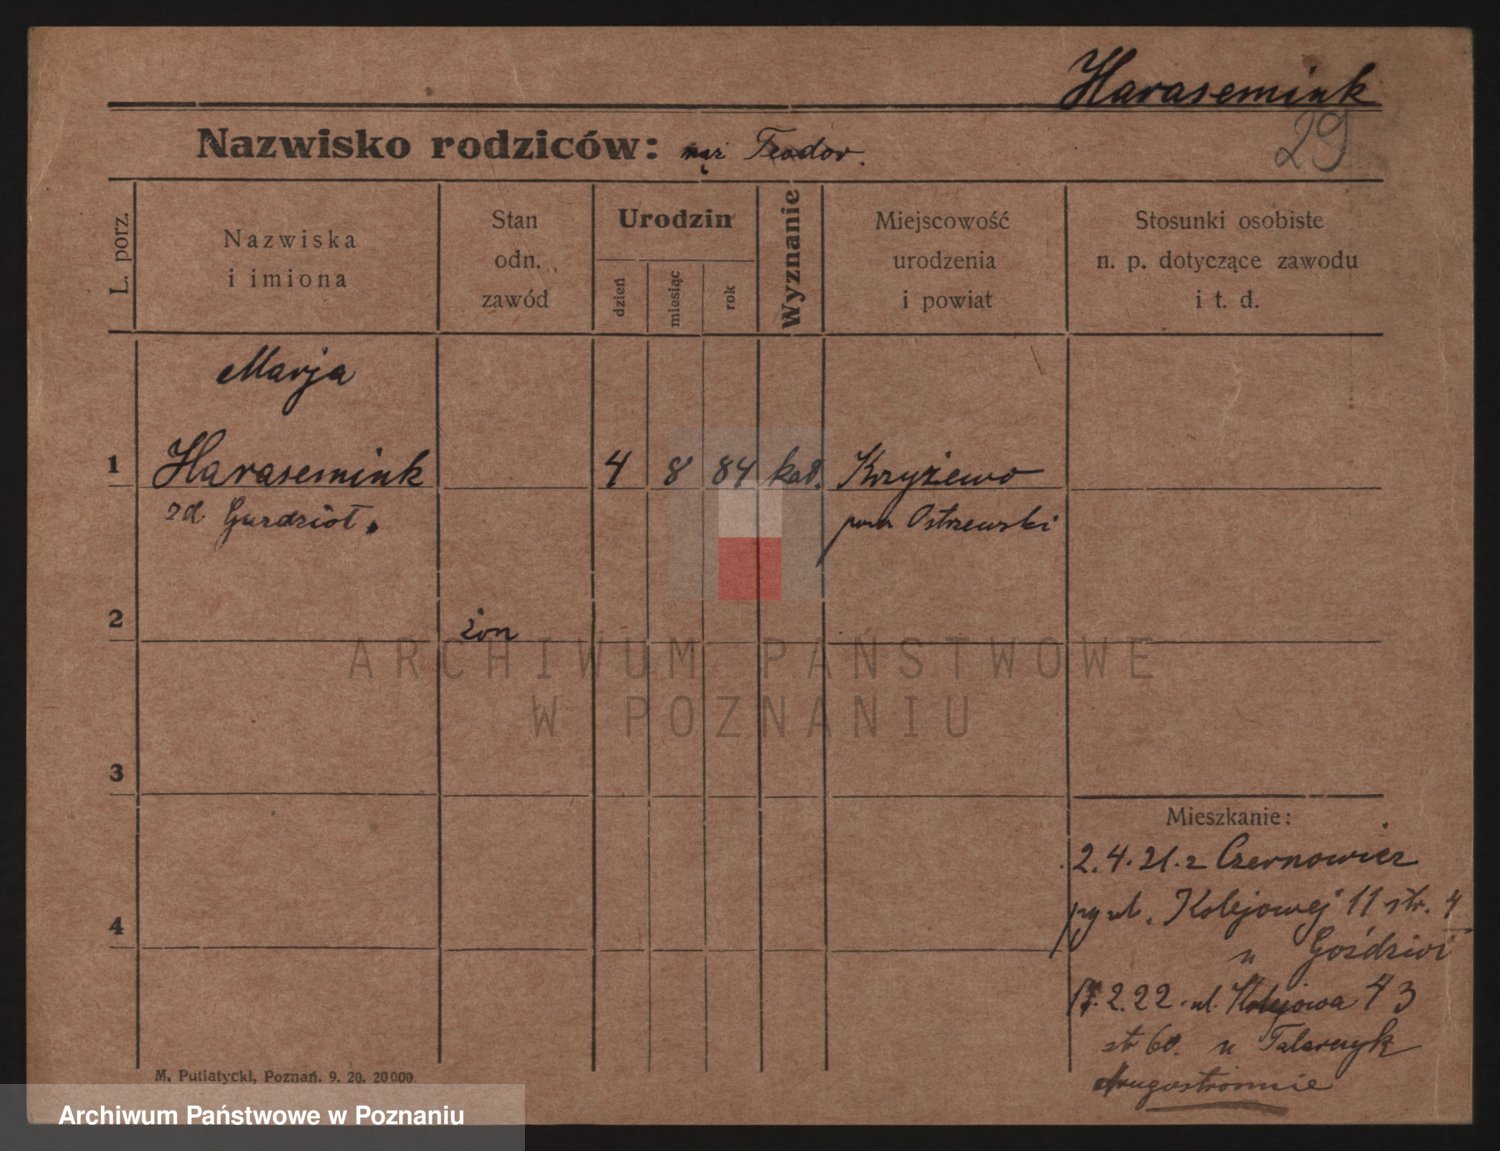 Harasemink
29
Nazwisko rodziców: mąż Teodor.
L. porz.
Nazwiska
i imiona
Stan
odn.
zawód
Urodzin
dzień
miesiąc
rok
Wyznanie
Miejscowość
urodzenia
i powiat
Stosunki osobiste
n. p. dotyczące zawodu
i t. d.
Marja
1 Harasemink 4 8 84 kat. Krzyżewo
zd. Gurdziot. pow Ostrzewski
2
żon
3
4
Mieszkanie:
2.4.21. z Czernowicz
ul. Kolejowej 11 str. 4
u Goździwi
2.22. ul. Kolejowa 43
str 60. u Talarczyk
drugostronnie
M. Putiatycki, Poznań. 9. 20. 20000.
ARCHIWUM PAŃSTWOWE
W POZNANIU
Archiwum Państwowe w Poznaniu